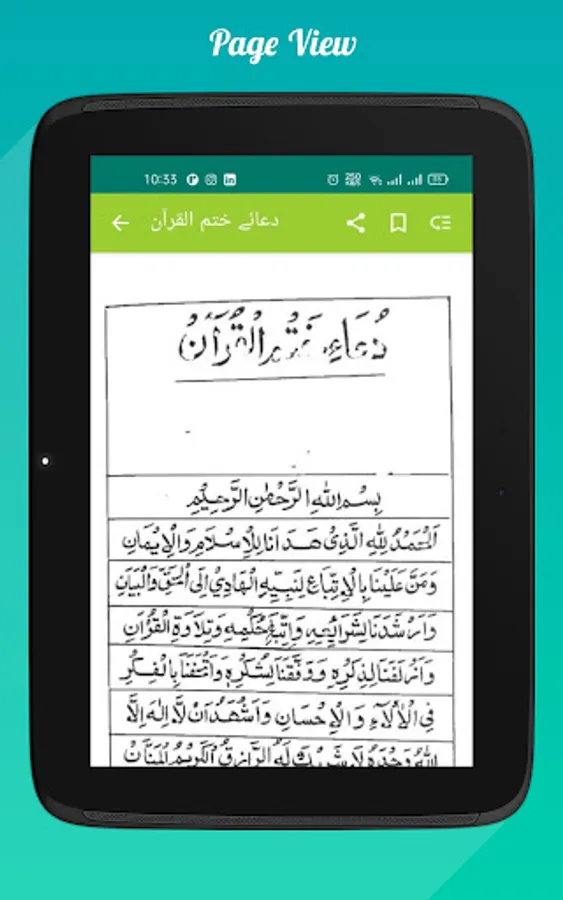 Page View
10:33
دعائے ختم القرآن
دُعَاءِ خَتْمِ الْقُرْآنْ
بِسْمِ اللهِ الرَّحْمٰنِ الرَّحِيْمِ
اَلْحَمْدُ لِلّٰهِ الَّذِىْ هَدَانَا لِلْاِسْلَامِ وَالْاِيْمَانِ
وَمَنَّ عَلَيْنَا بِالْاِتِّبَاعِ لِنَبِيِّهِ الْهَادِيْ اِلَى الْحَقِّ وَالْبَيَانِ
وَاَرْشَدَنَا لِشَرَائِعِهٖ وَاتِّبَاعِ حُكْمِهٖ وَتِلَاوَةِ الْقُرْاٰنِ
لِذِكْرِهٖ وَوَفَّقَنَا لِشُكْرِهٖ بِالْفِكْرِ
فِي الْاٰلَاءِ وَالْاِحْسَانِ وَاَشْهَدُ اَنْ لَّا اِلٰهَ اِلَّا
اللّٰهُ وَحْدَهٗ لَا شَرِيْكَ لَهُ الرَّازِقُ الْكَرِيْمُ الْمَنَّانُ